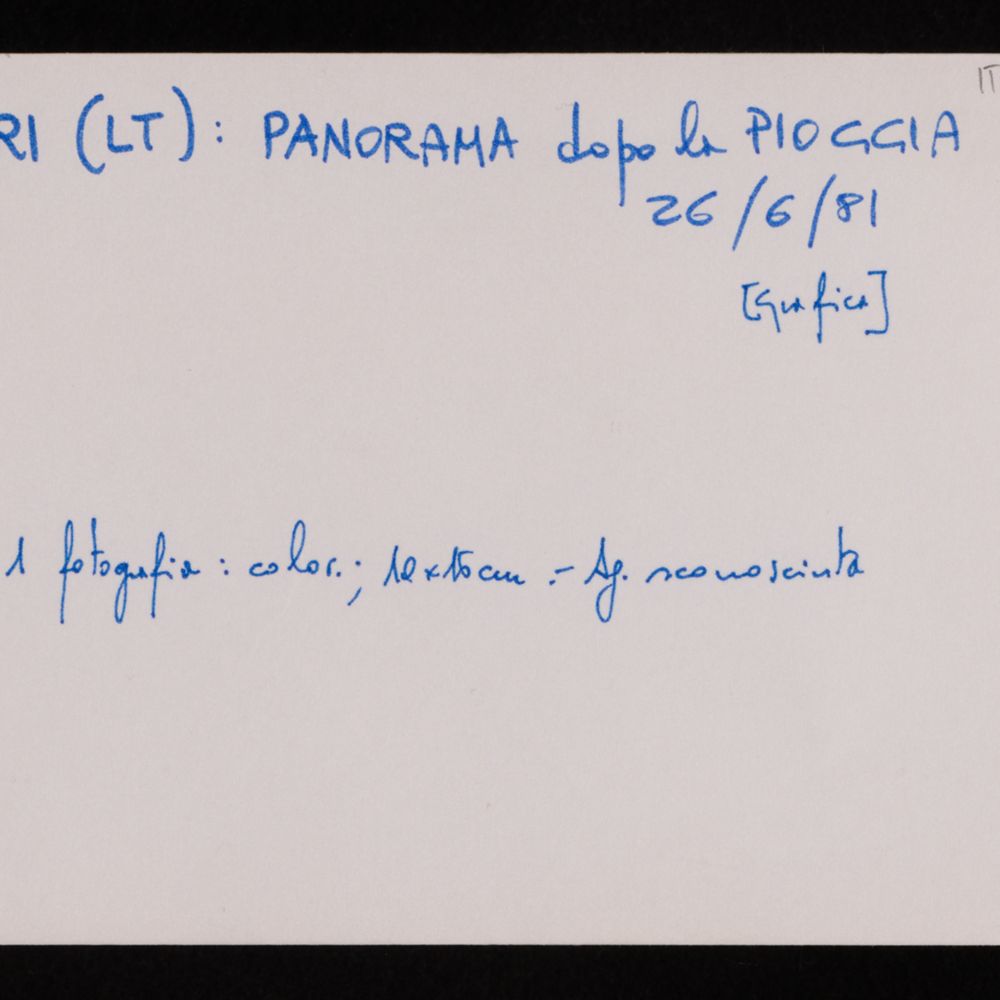 IT
RI (LT): PANORAMA dopo la PIOGGIA
26/6/81
[Grafica]
1 fotografia : color. ; 10x15 cm .- Ag. sconosciuta